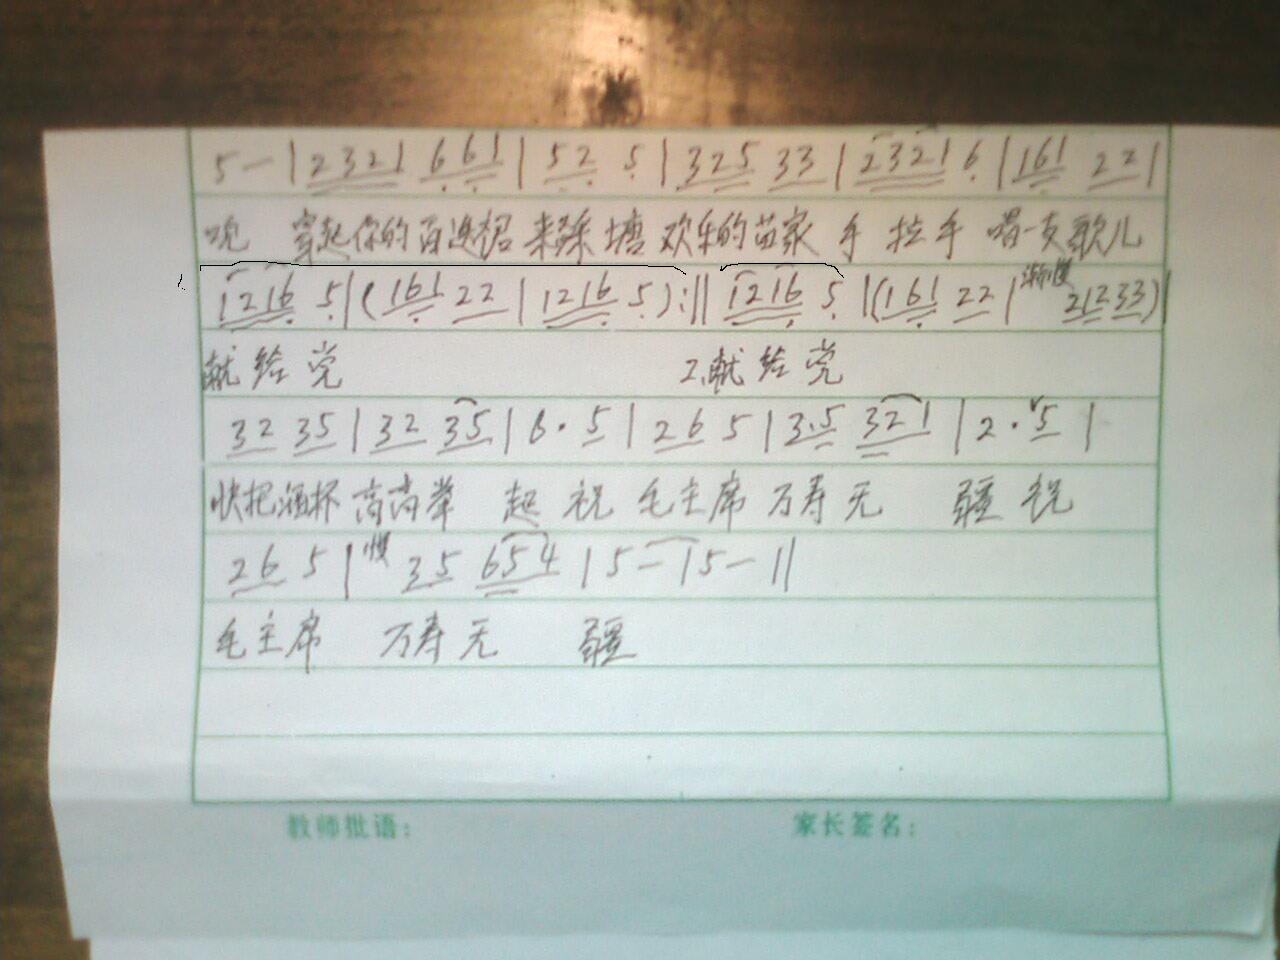 5 — | 2321 661 | 52 5 | 325 33 | 2321 6 | 161 22 |
穿起你的百迭裙 来踩塘 欢乐的苗家 手 拉 手 唱一支歌儿
1216 5 | ( 161 22 | 1216 5 ) :|| 1216 5 | ( 161 22 | 渐慢 21233 ) |
献 给 党 2.献 给 党
32 35 | 32 35 | 6· 5 | 26 5 | 3.5 321 | 2· 5 |
快把酒杯 高高举 起 祝 毛主席 万寿无 疆 祝
26 5 | 慢 35 654 | 5 — | 5 — ||
毛主席 万寿无 疆
教师批语： 家长签名：